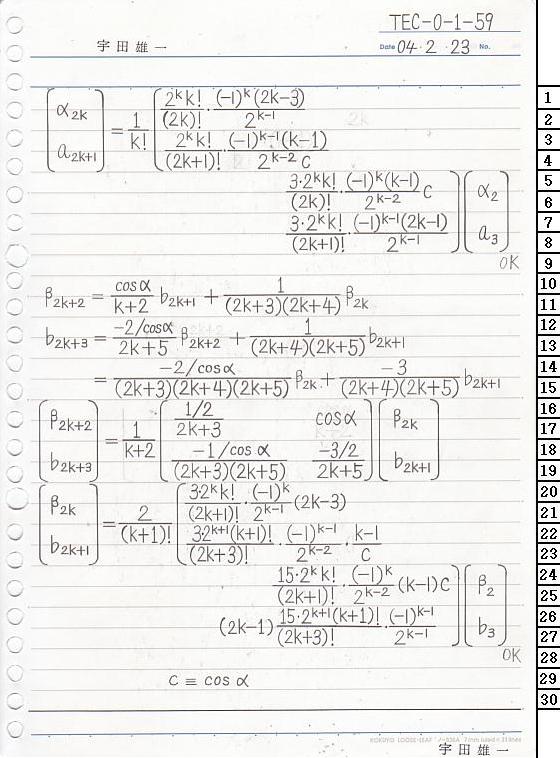 TEC-0-1-59
宇田雄一 Date 04・2・23 No.
[α_{2k} ; a_{2k+1}] = 1/k! [ 2^k k!/(2k)! · (-1)^k(2k-3)/2^{k-1} ; 2^k k!/(2k+1)! · (-1)^{k-1}(k-1)/2^{k-2}C
3·2^k k!/(2k)! · (-1)^k(k-1)/2^{k-2} C ; 3·2^k k!/(2k+1)! · (-1)^{k-1}(2k-1)/2^{k-1} ] [α_2 ; a_3]
OK
β_{2k+2} = cosα/(k+2) b_{2k+1} + 1/((2k+3)(2k+4)) β_{2k}
b_{2k+3} = (-2/cosα)/(2k+5) β_{2k+2} + 1/((2k+4)(2k+5)) b_{2k+1}
= (-2/cosα)/((2k+3)(2k+4)(2k+5)) β_{2k} + -3/((2k+4)(2k+5)) b_{2k+1}
[β_{2k+2} ; b_{2k+3}] = 1/(k+2) [ (1/2)/(2k+3) cosα ; (-1/cosα)/((2k+3)(2k+5)) (-3/2)/(2k+5) ] [β_{2k} ; b_{2k+1}]
[β_{2k} ; b_{2k+1}] = 2/(k+1)! [ 3·2^k k!/(2k+1)! · (-1)^k/2^{k-1} (2k-3) ; 3·2^{k+1}(k+1)!/(2k+3)! · (-1)^{k-1}/2^{k-2} · (k-1)/C
15·2^k k!/(2k+1)! · (-1)^k/2^{k-2} (k-1)C ; (2k-1) 15·2^{k+1}(k+1)!/(2k+3)! · (-1)^{k-1}/2^{k-1} ] [β_2 ; b_3]
OK
C ≡ cosα
宇田雄一
1
2
3
4
5
6
7
8
9
10
11
12
13
14
15
16
17
18
19
20
21
22
23
24
25
26
27
28
29
30